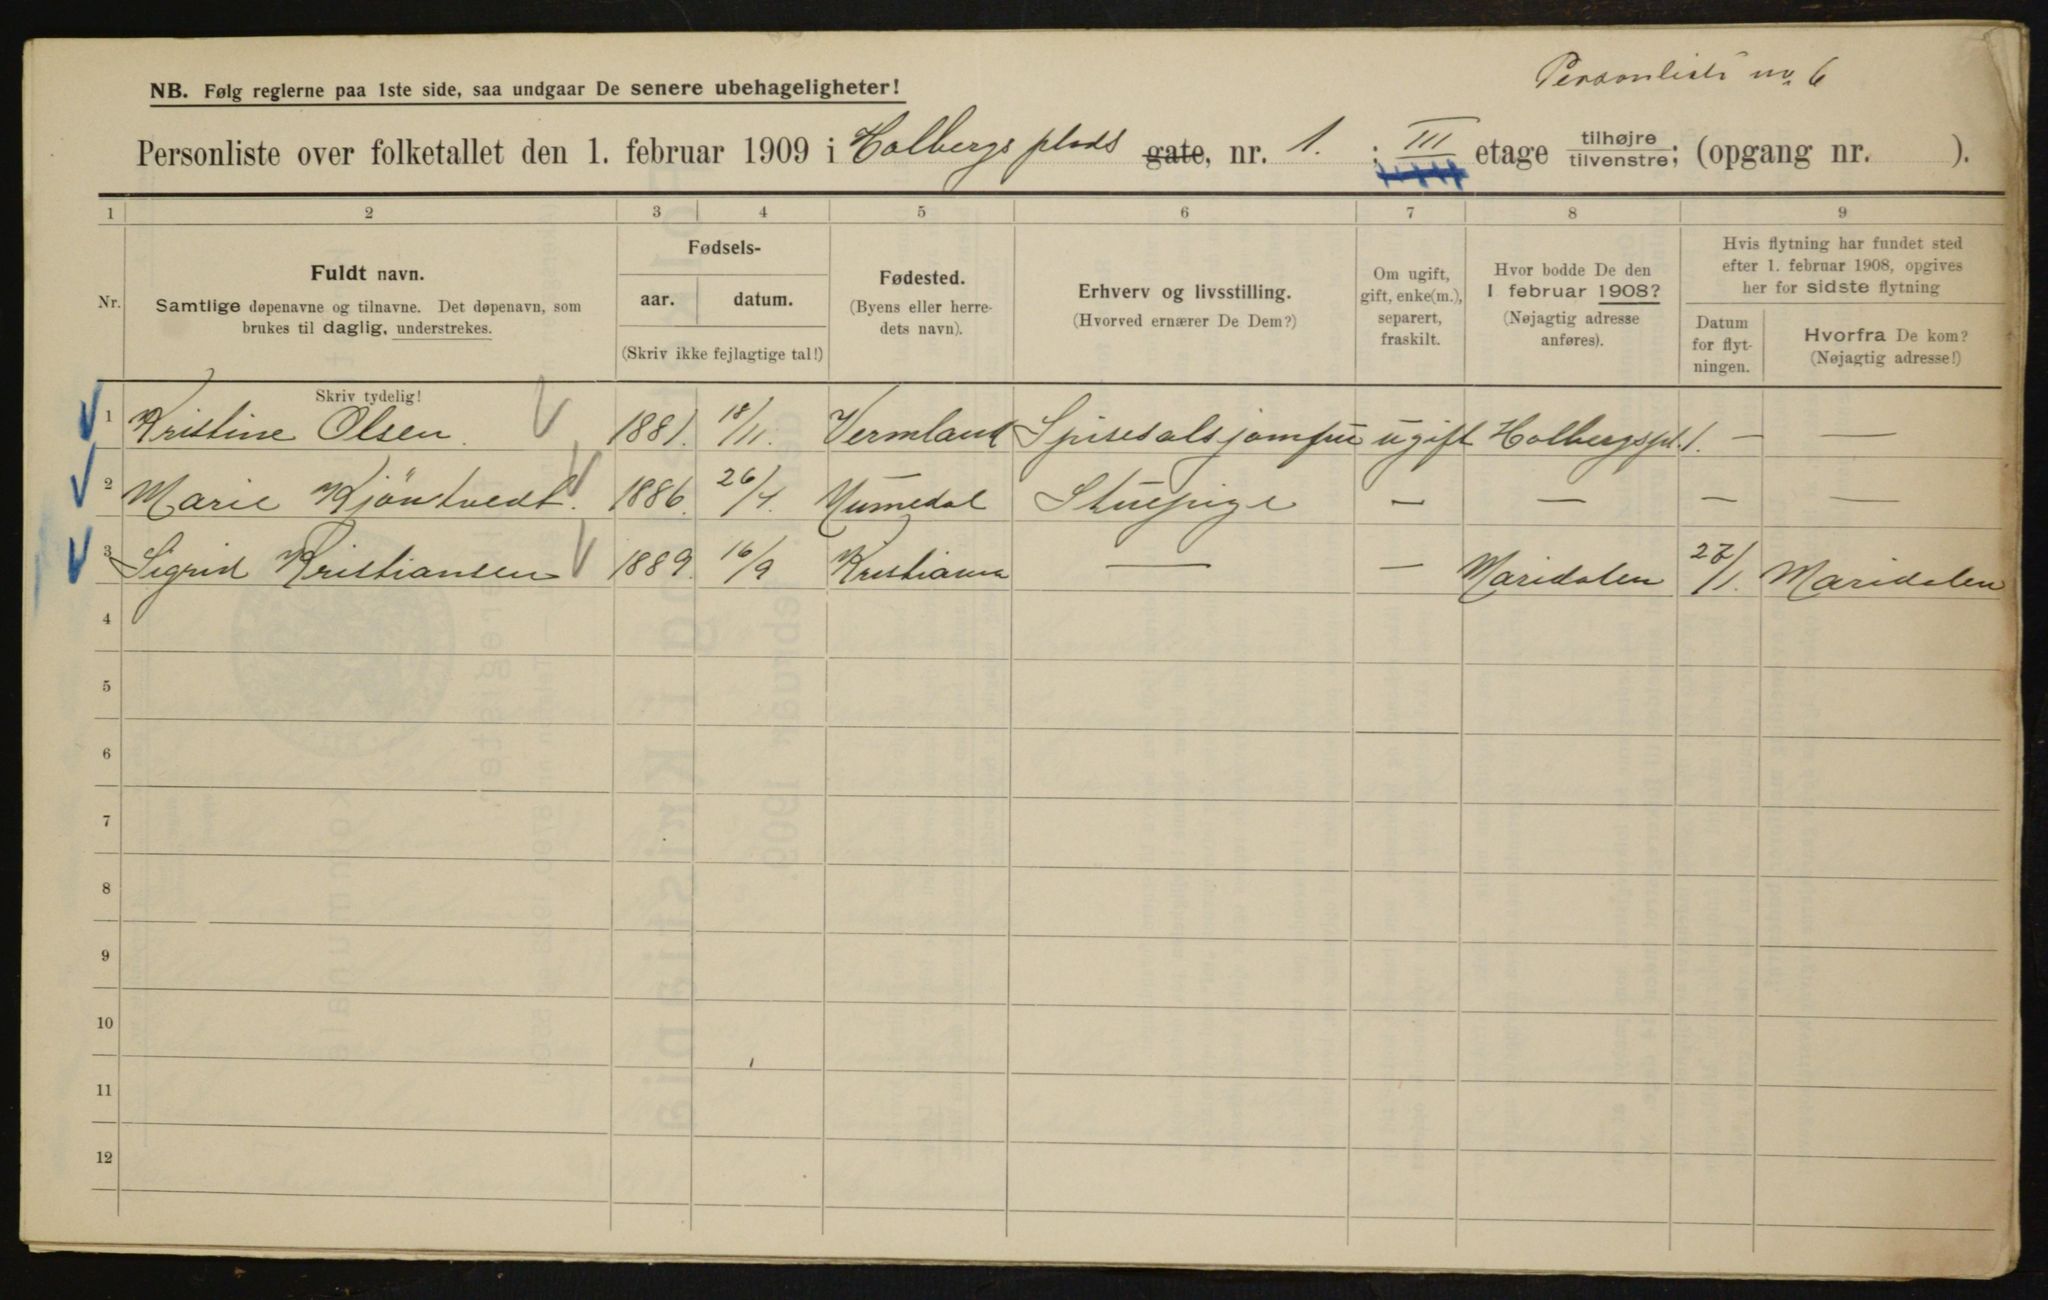 Personliste no 6
NB. Følg reglerne paa 1ste side, saa undgaar De senere ubehageligheter!
Personliste over folketallet den 1. februar 1909 i Holbergs plads gate, nr. 1. ; III etage tilhøjre tilvenstre; (opgang nr. ).
1 2 3 4 5 6 7 8 9
Nr.
Fuldt navn.
Samtlige døpenavne og tilnavne. Det døpenavn, som
brukes til daglig, understrekes.
Skriv tydelig!
Fødsels-
aar. datum.
(Skriv ikke fejlagtige tal!)
Fødested.
(Byens eller herre-
dets navn).
Erhverv og livsstilling.
(Hvorved ernærer De Dem?)
Om ugift,
gift, enke(m.),
separert,
fraskilt.
Hvor bodde De den
1 februar 1908?
(Nøjagtig adresse
anføres).
Hvis flytning har fundet sted
efter 1. februar 1908, opgives
her for sidste flytning
Datum
for flyt-
ningen.
Hvorfra De kom?
(Nøjagtig adresse!)
1 Kristine Olsen. 1881. 18/11. Vermland Spisesalsjomfru ugift Holbergspl. 1. — —
2 Marie Kjöntvedt. 1886. 26/4. Numedal Stuepige — — — —
3 Sigrid Kristiansen 1889. 16/9 Kristiania — — Maridalen 27/1. Maridalen
4
5
6
7
8
9
10
11
12